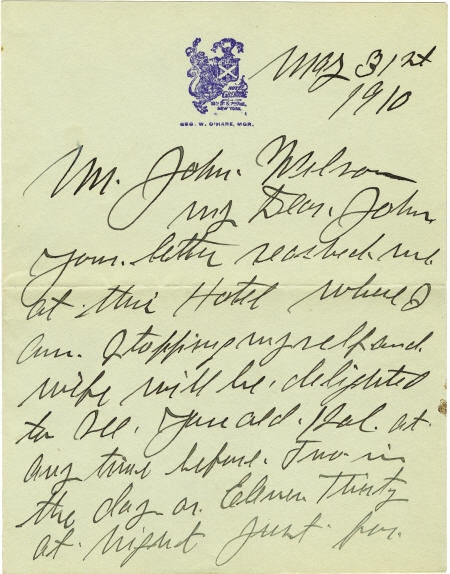 May 31st
1910
NEW YORK.
GEO. W. O'HARE, MGR.
Mr. John. Wilson
my Dear. John.
Your. letter reached. me
at this Hotel where I
am. Stopping myself and.
wife will be. delighted
to see. you old. Pal. at
any time before. Two in
the day or Eleven Thirty
at night Just for.